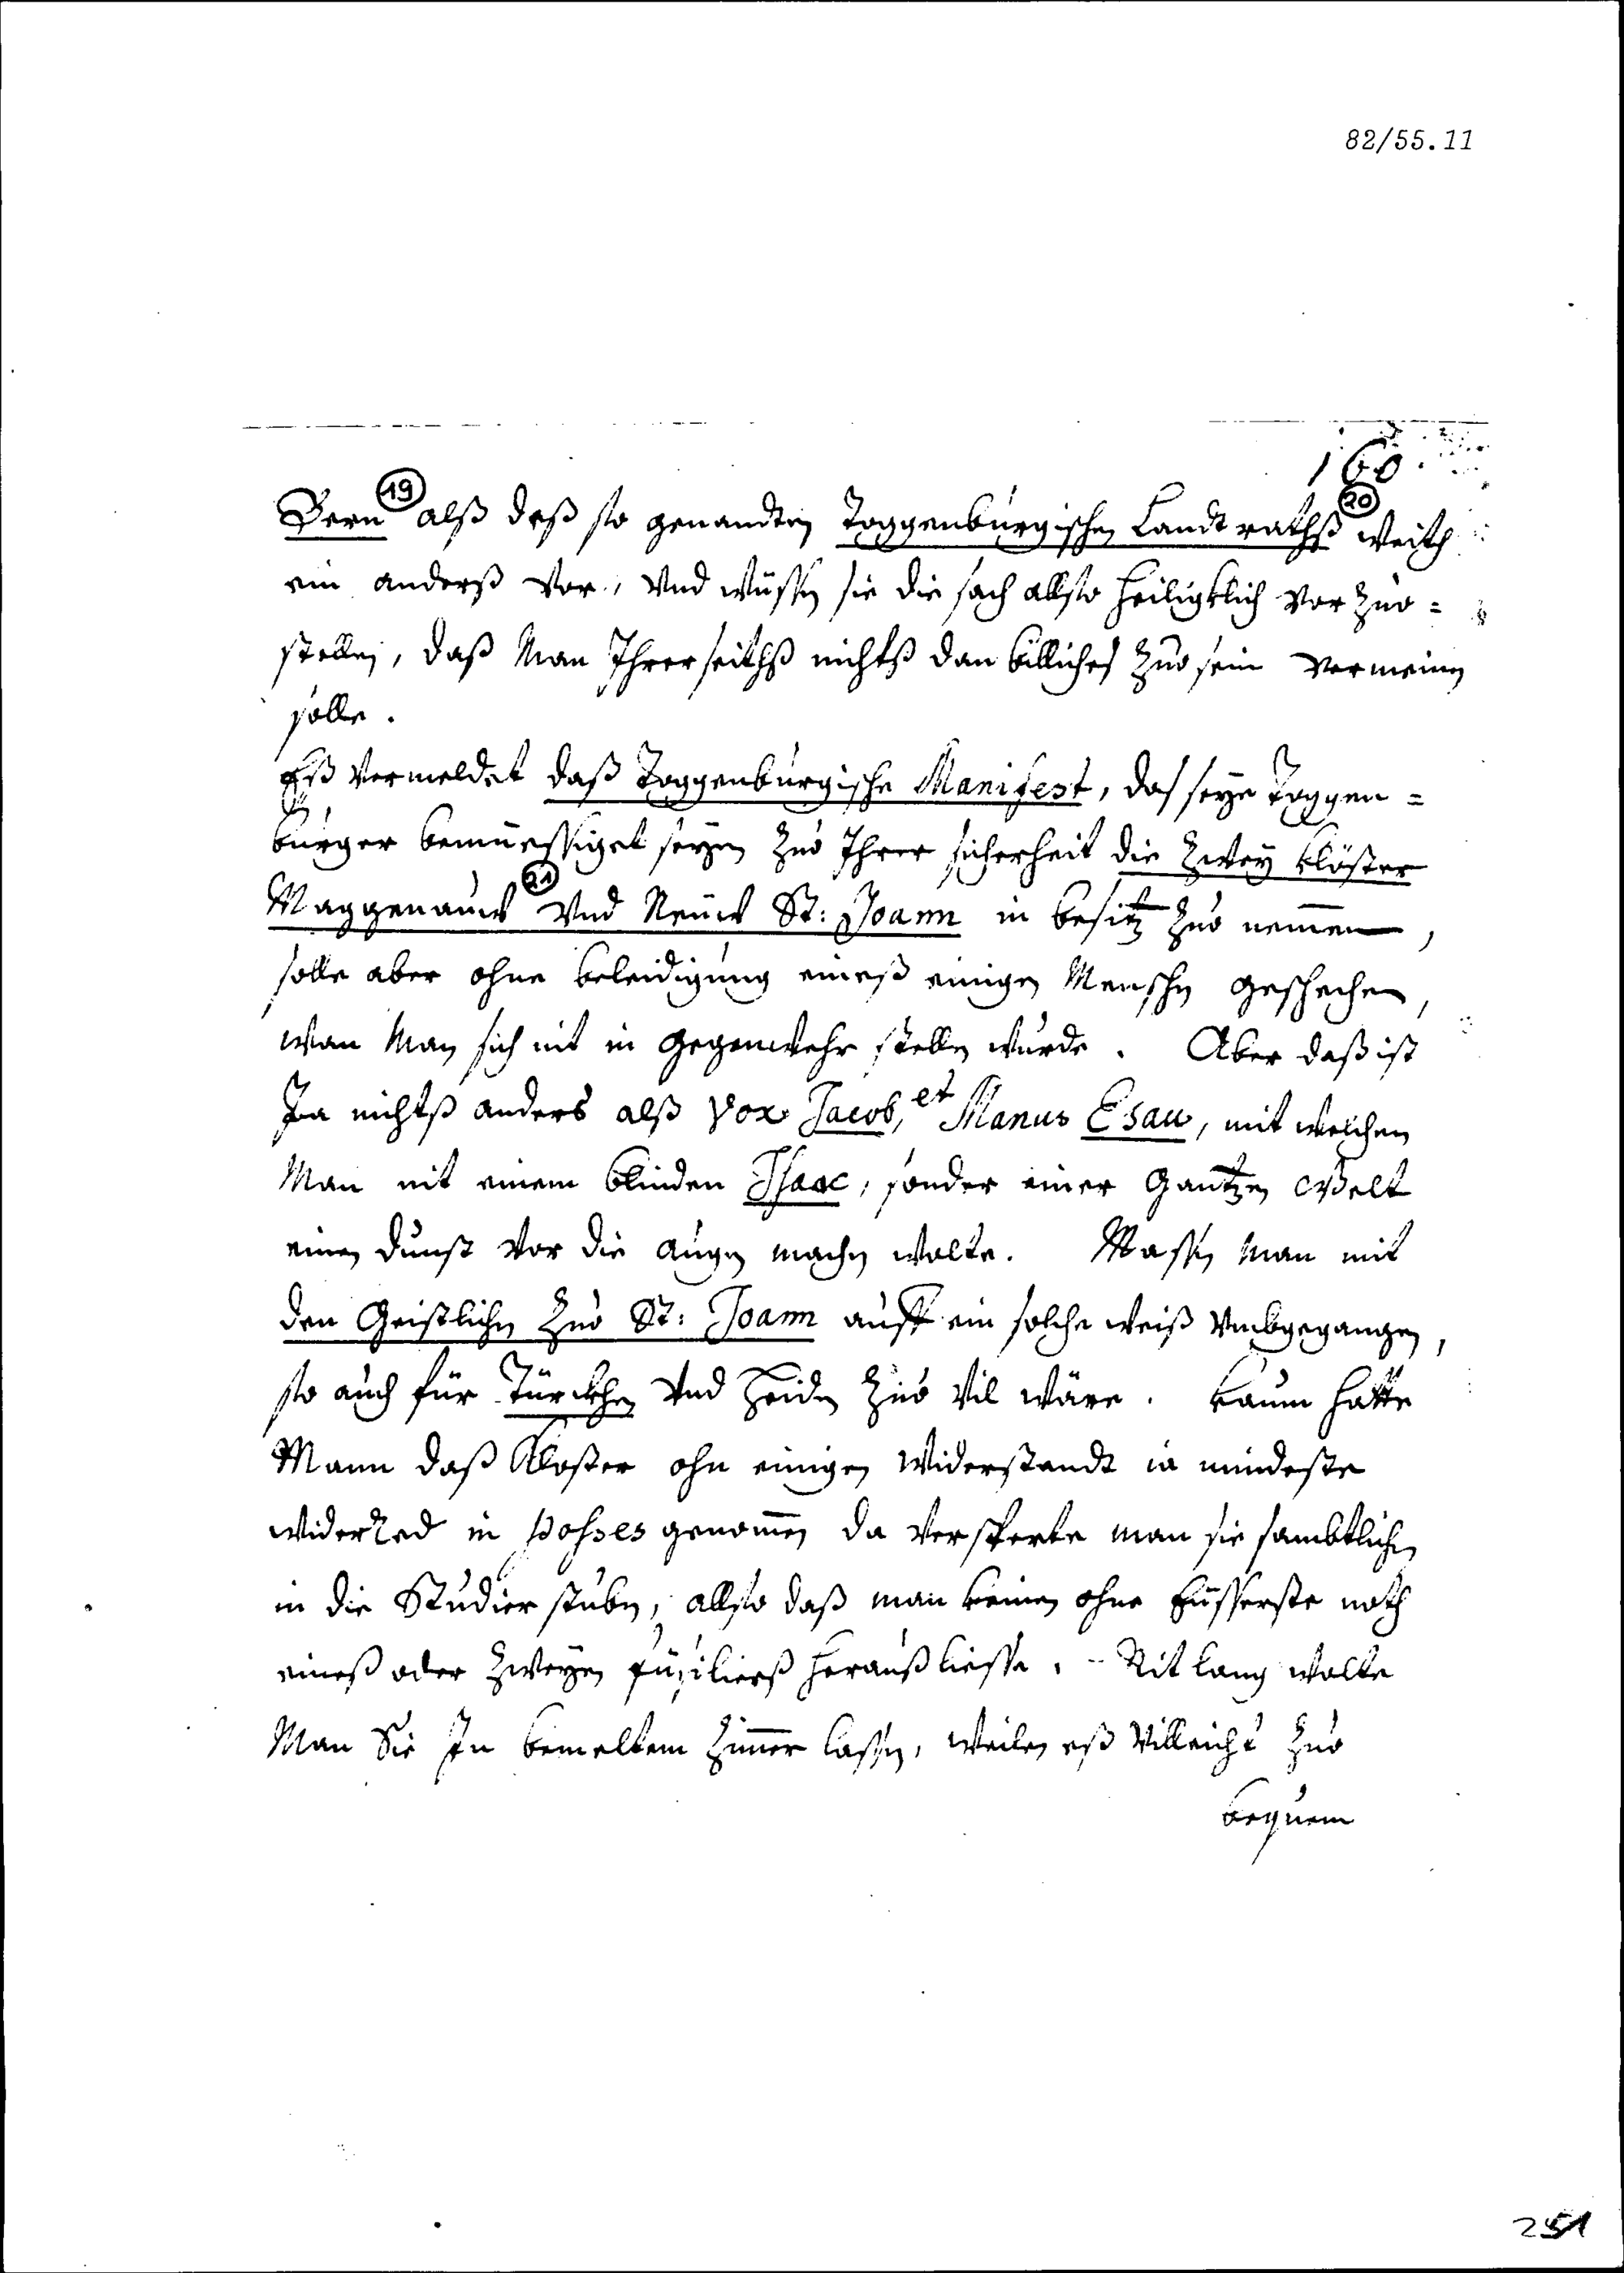 82/55.11
160.
19 20
Bern alß deß so genandten Toggenburgischen Landtrathß weith
ein anderß vor, vnd wüssen sie die sach allso heiligklich vor zuo=
stellen, daß Man Ihrerseithß nichtß dan billiches zuo sein vermeinen
solle.
Eß vermeldet daß Toggenburgische Manifest, das seye Toggen=
burger bemüessiget seyen zuo Ihrer sicherheit die zwey klöster
21
Maggenauw vnd Neuw St: Joann in besitz zuo nemmen,
solle aber ohne beleidigung eineß einigen Menschen geschechen,
wan Man sich nit in gegenwehr stellen wurde. Aber daß ist
Ja nichtß anders alß Vox Jacob, et Manus Esau, mit welchen
Man nit einem blinden Isaac, sonder einer gantzen Welt
einen dunst vor die augen machen wolte. Massen man mit
den Geistlichen zuo St: Joann auff ein solche weiß vmbgegangen,
so auch für Türckhen vnd Heiden zuo vil wäre. kaum hatte
Mann daß Kloster ohn einigen widerstandt ia mindeste
widerred in posses genommen da versperte man sie sambtlichen
in die Studierstuben, allso daß man keinen ohne eüsserste noth
eineß oder zweyen füsilierß herauß liesse. Nit lang wolte
Man Sie In bemeltem zimmer lassen, weilen eß villeicht zuo
bequem
251